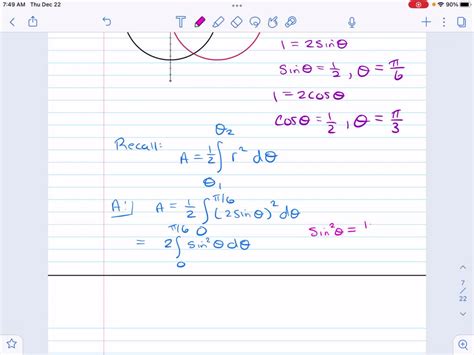 7:49 AM Thu Dec 22
90%
1 = 2sinθ
sinθ = 1/2, θ = π/6
1 = 2cosθ
cosθ = 1/2, θ = π/3
Recall:
A = 1/2 ∫_θ1^θ2 r² dθ
A: A = 1/2 ∫_0^π/6 (2sinθ)² dθ
= 2 ∫_0^π/6 sin²θ dθ
sin²θ = 1
7
/
22